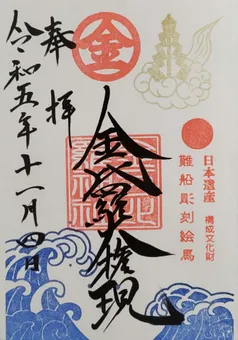 奉拝
令和五年十一月四日
金
金毘羅大権現
日本遺産
構成文化財
難船彫刻絵馬